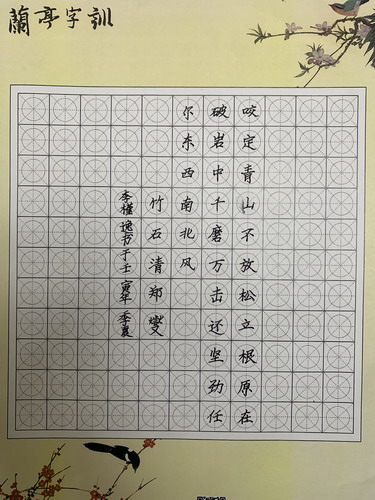 蘭亭字訓
咬定青山不放松立根原在
破岩中千磨万击还坚劲任
尔东西南北风
竹石清郑燮
李槿逸书于壬寅年季夏